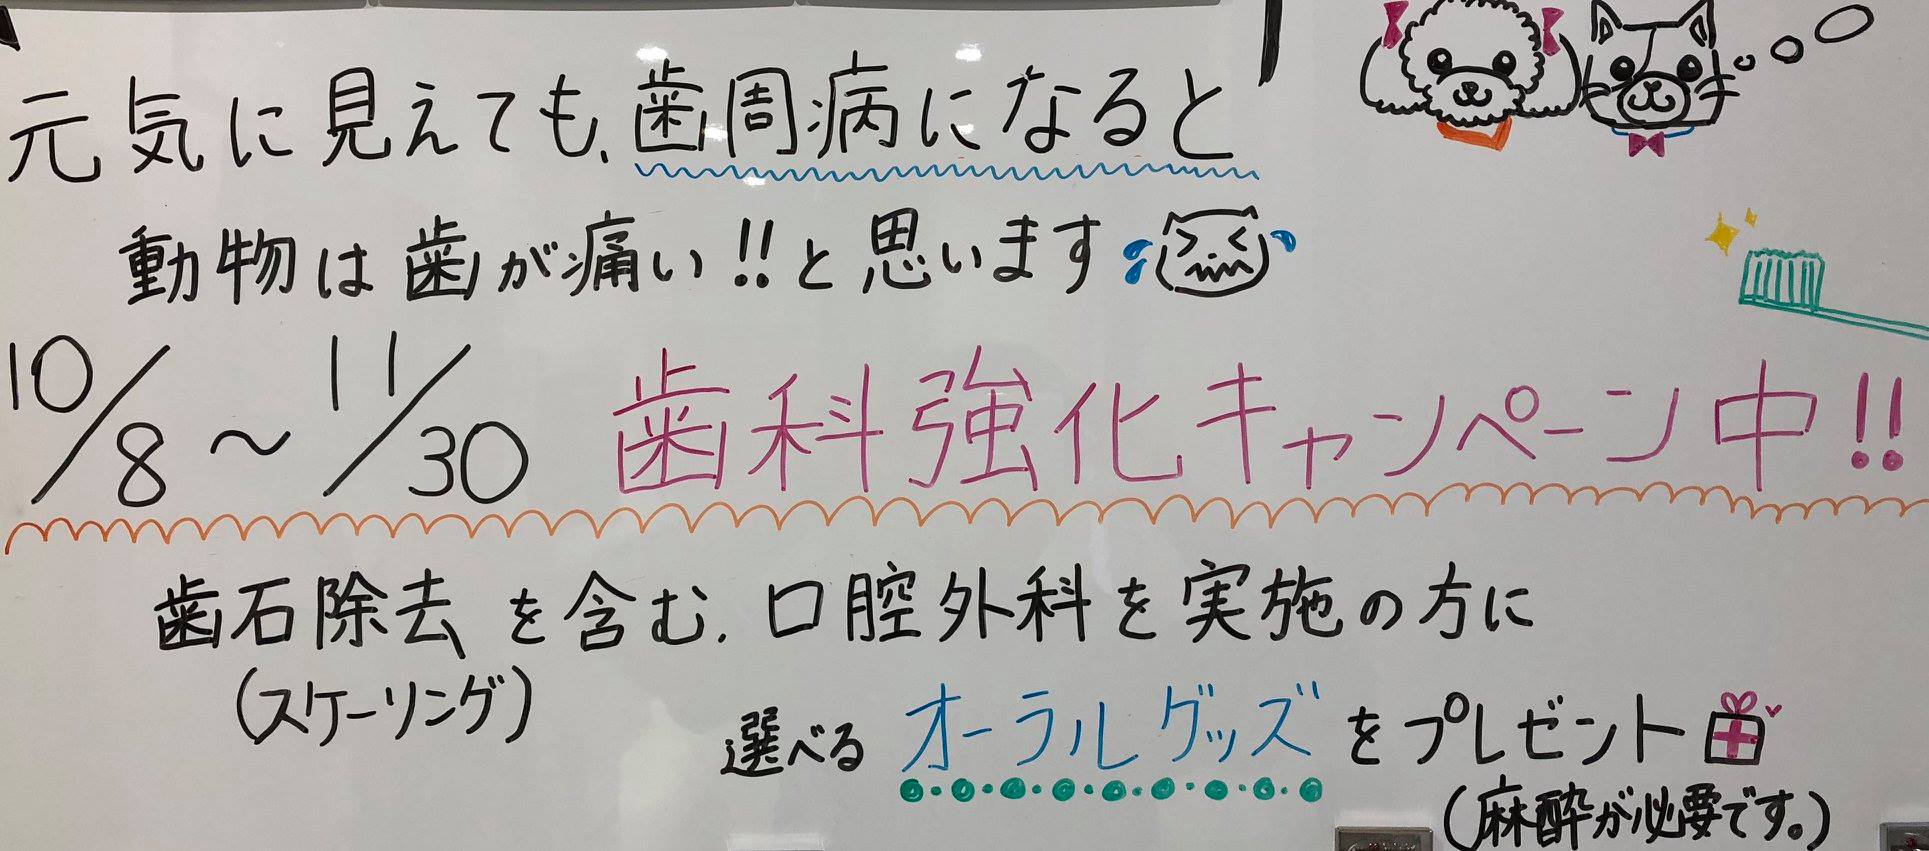 元気に見えても、歯周病になると
動物は歯が痛い!!と思います
10/8～11/30 歯科強化キャンペーン中!!
歯石除去を含む、口腔外科を実施の方に
(スケーリング)
選べるオーラルグッズをプレゼント
(麻酔が必要です。)